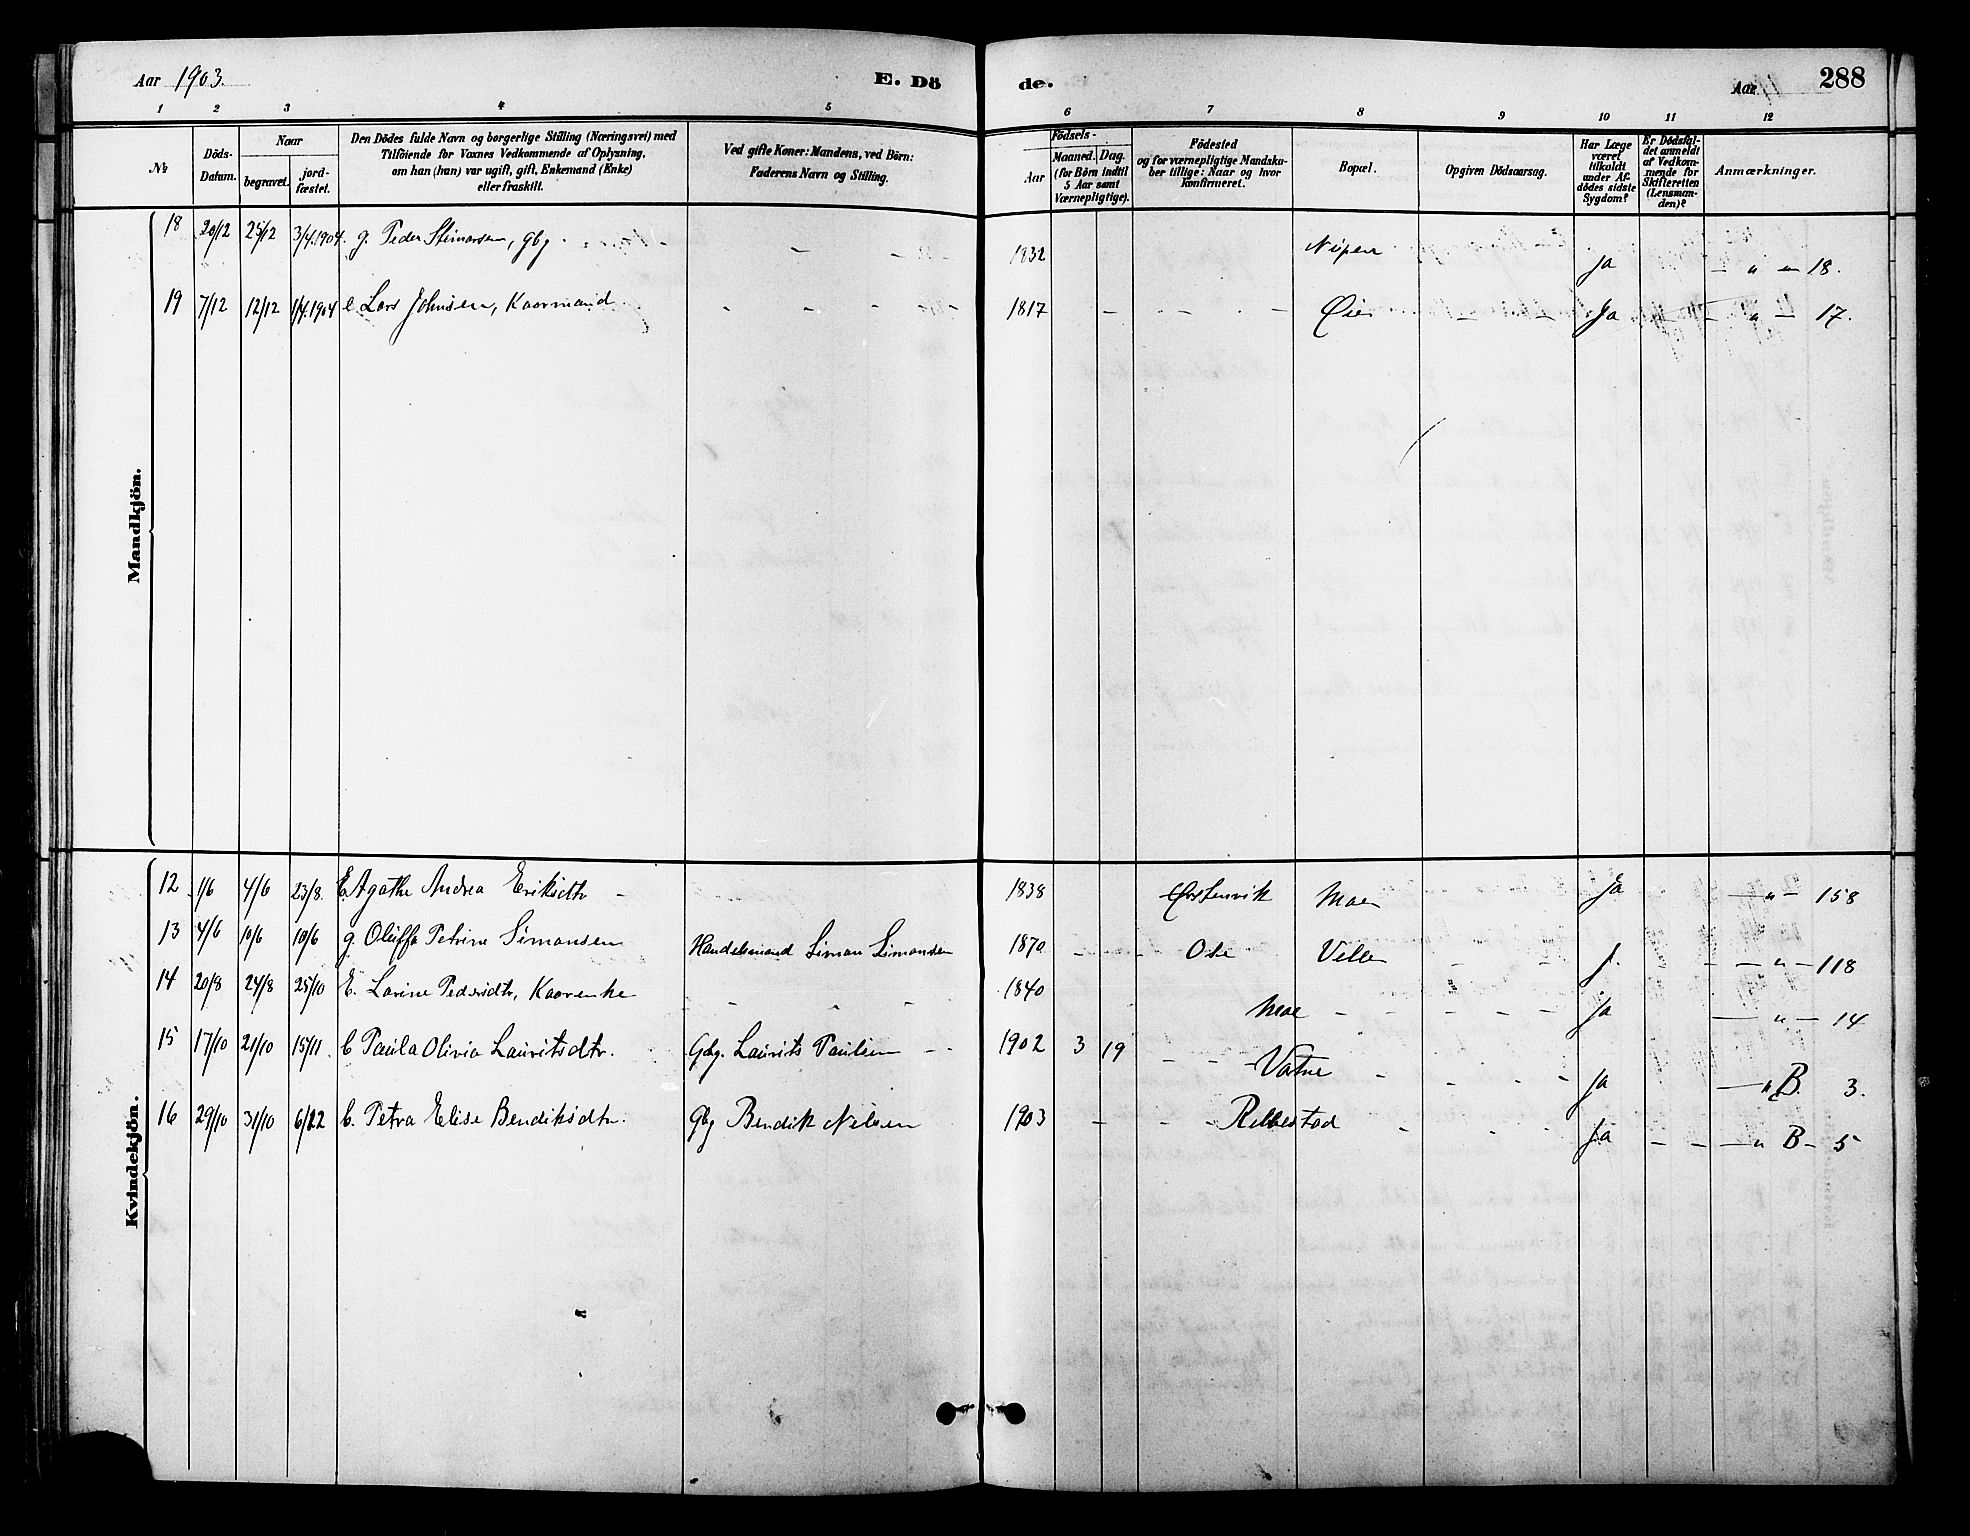 Aar 1903. E. Dö de. Aar 288
1 2 3 4 5 6 7 8 9 10 11 12
№ Döds-Datum. Naar begravet. jord-fæstet. Den Dödes fulde Navn og borgerlige Stilling (Næringsvei) med Tilföiende for Voxnes Vedkommende af Oplysning, om han (hun) var ugift, gift, Enkemand (Enke) eller fraskilt. Ved gifte Koner: Mandens, ved Börn: Faderens Navn og Stilling. Födsels- Aar Maaned. Dag. (for Börn indtil 5 Aar samt Værnepligtige). Födested og for værnepligtige Mandskaber tillige: Naar og hvor konfirmeret. Bopæl. Opgiven Dödsaarsag. Har Læge været tilkaldt under Afdödes sidste Sygdom? Er Dödsfaldet anmeldt af Vedkommende for Skifteretten (Lensmanden)? Anmærkninger.
Mandkjön.
18 20/12 25/12 3/4.1904. g. Peder Steinarsen, gbg. 1832 Nupen Ja — " — 18.
19 7/12 12/12 1/4.1904 e. Lars Johnsen, Kaarmand. 1817 Øie Ja — " — 17.
Kvindekjön.
12 1/6 4/6 23/8. E. Agathe Andrea Eriksdtr 1838 Ørstenvik Moe Ja — " — 158
13 4/6 10/6 10/6 g. Oluffa Petrine Simonsen Handelsmand Simon Simonsen 1870 Ose Velle J. — " — 118
14 20/8 24/8 25/10 E. Lovine Pedersdtr, Kaarenke 1840 Moe Ja — " — 14
15 17/10 21/10 15/11. b Paula Olivia Lauritsdtr. Gbg. Laurits Paulsen 1902 3 19 Vatne Ja — " B. 3.
16 29/10 31/10 6/12 b. Petra Elise Bendiksdtr. Gbg Bendik Nilsen 1903 Rebbestad Ja — " B — 5